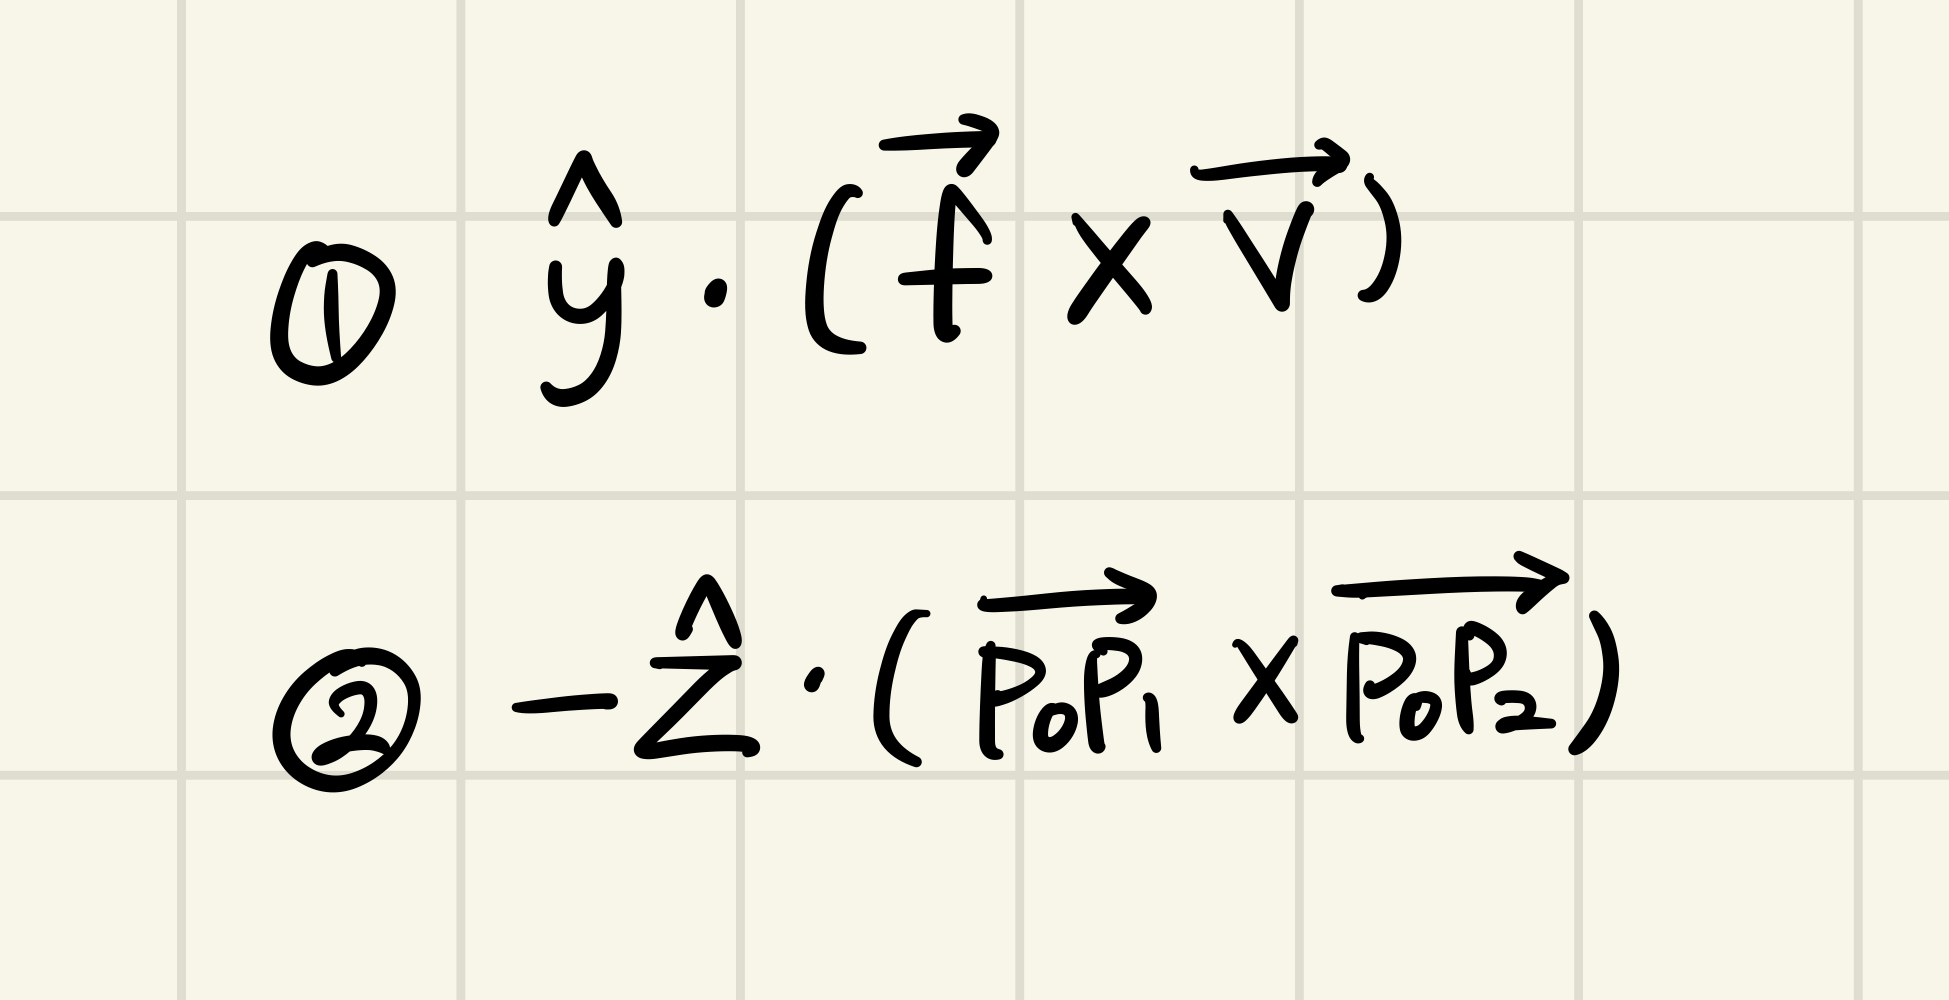 ① ŷ · (f⃗ × v⃗)
② −ẑ · (P₀P₁⃗ × P₀P₂⃗)